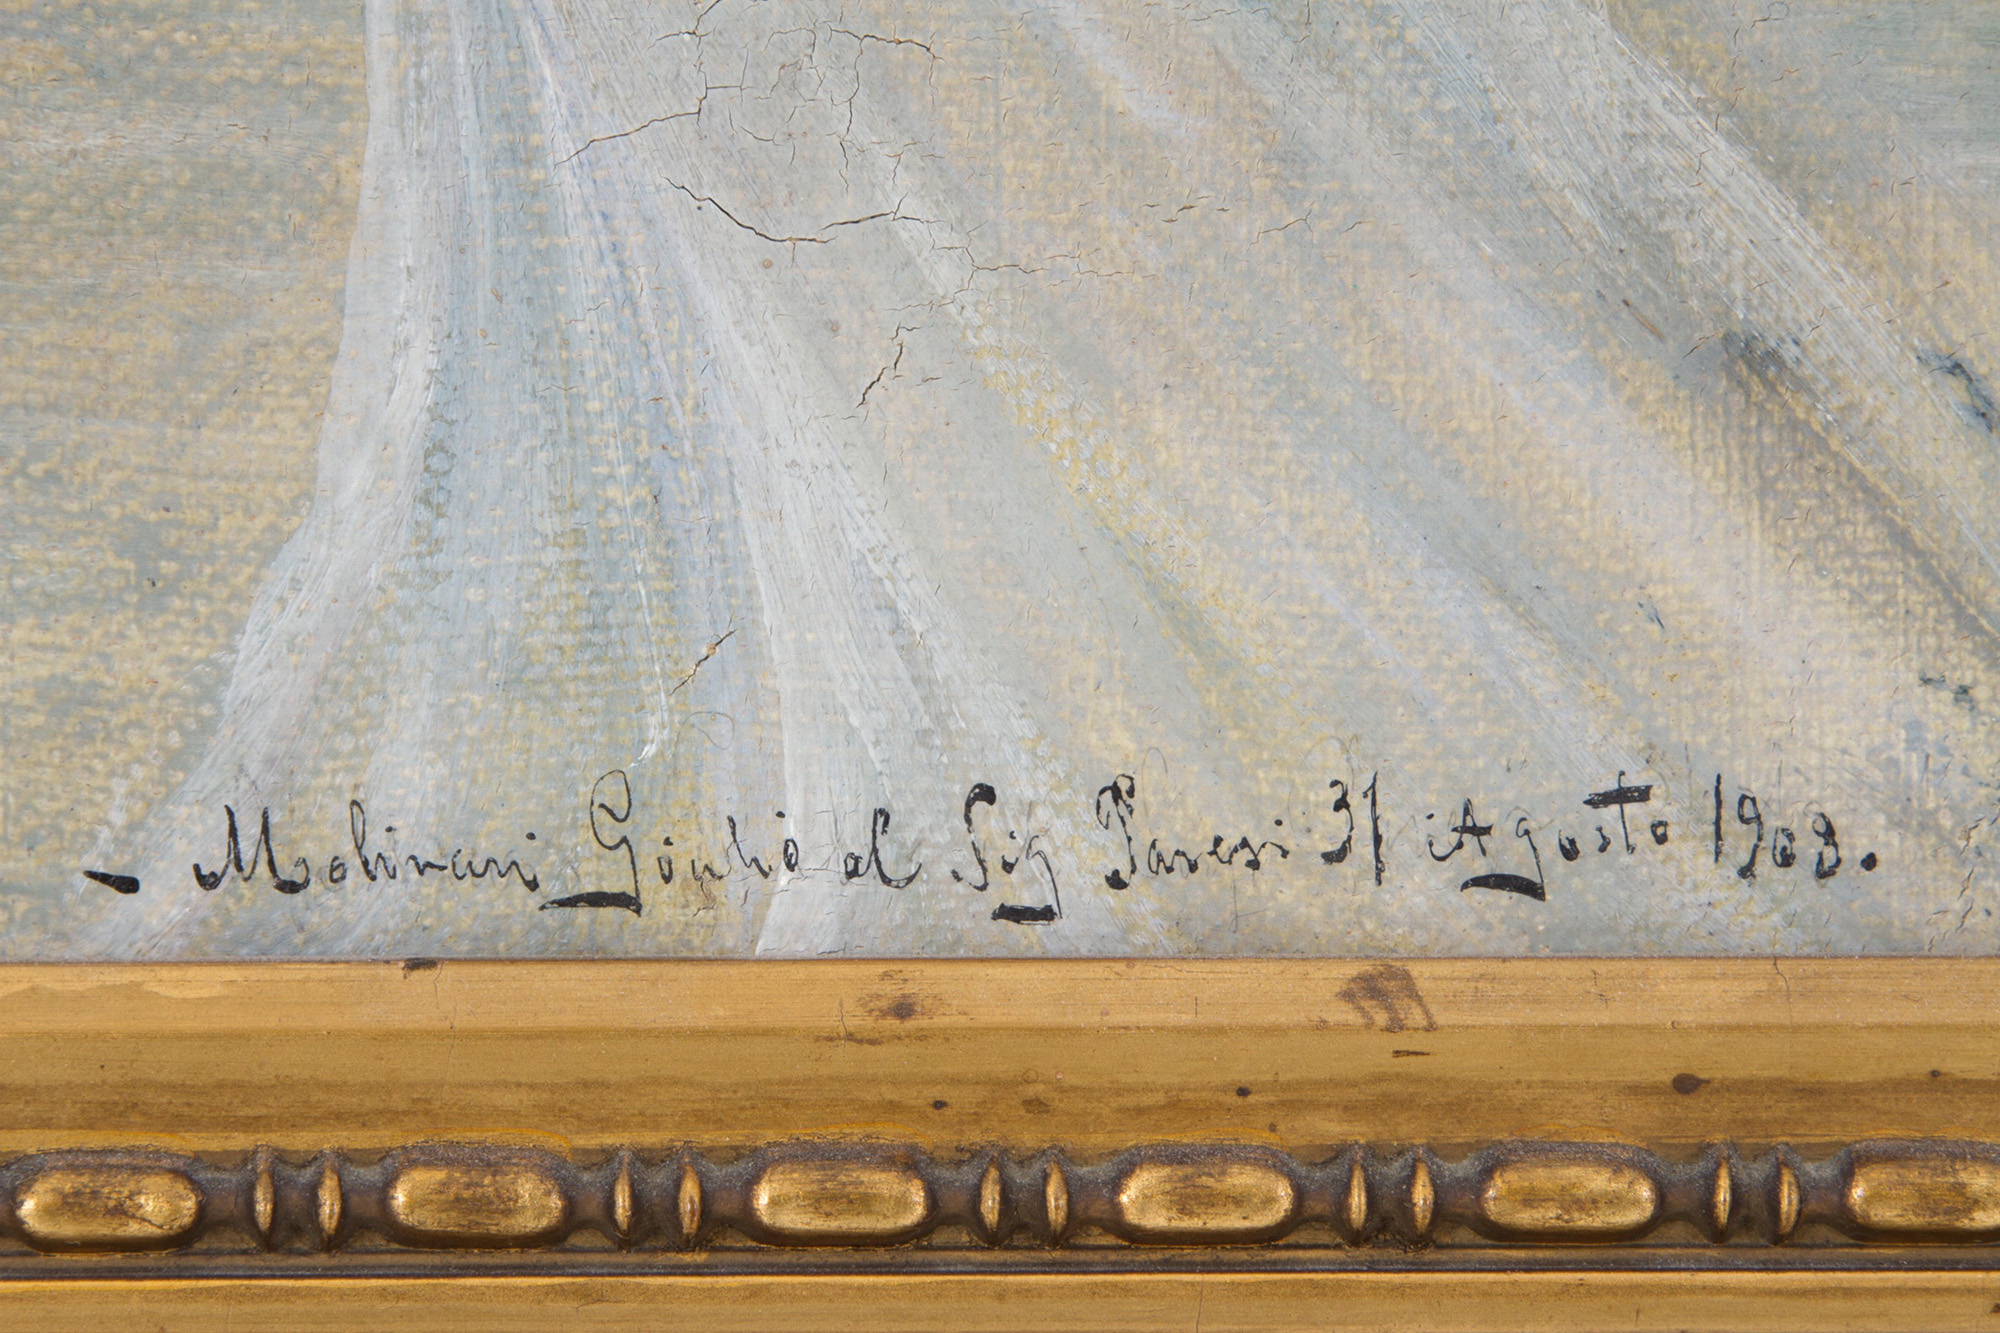 - Molinari Giulio al Sig Paresi 31 Agosto 1908.